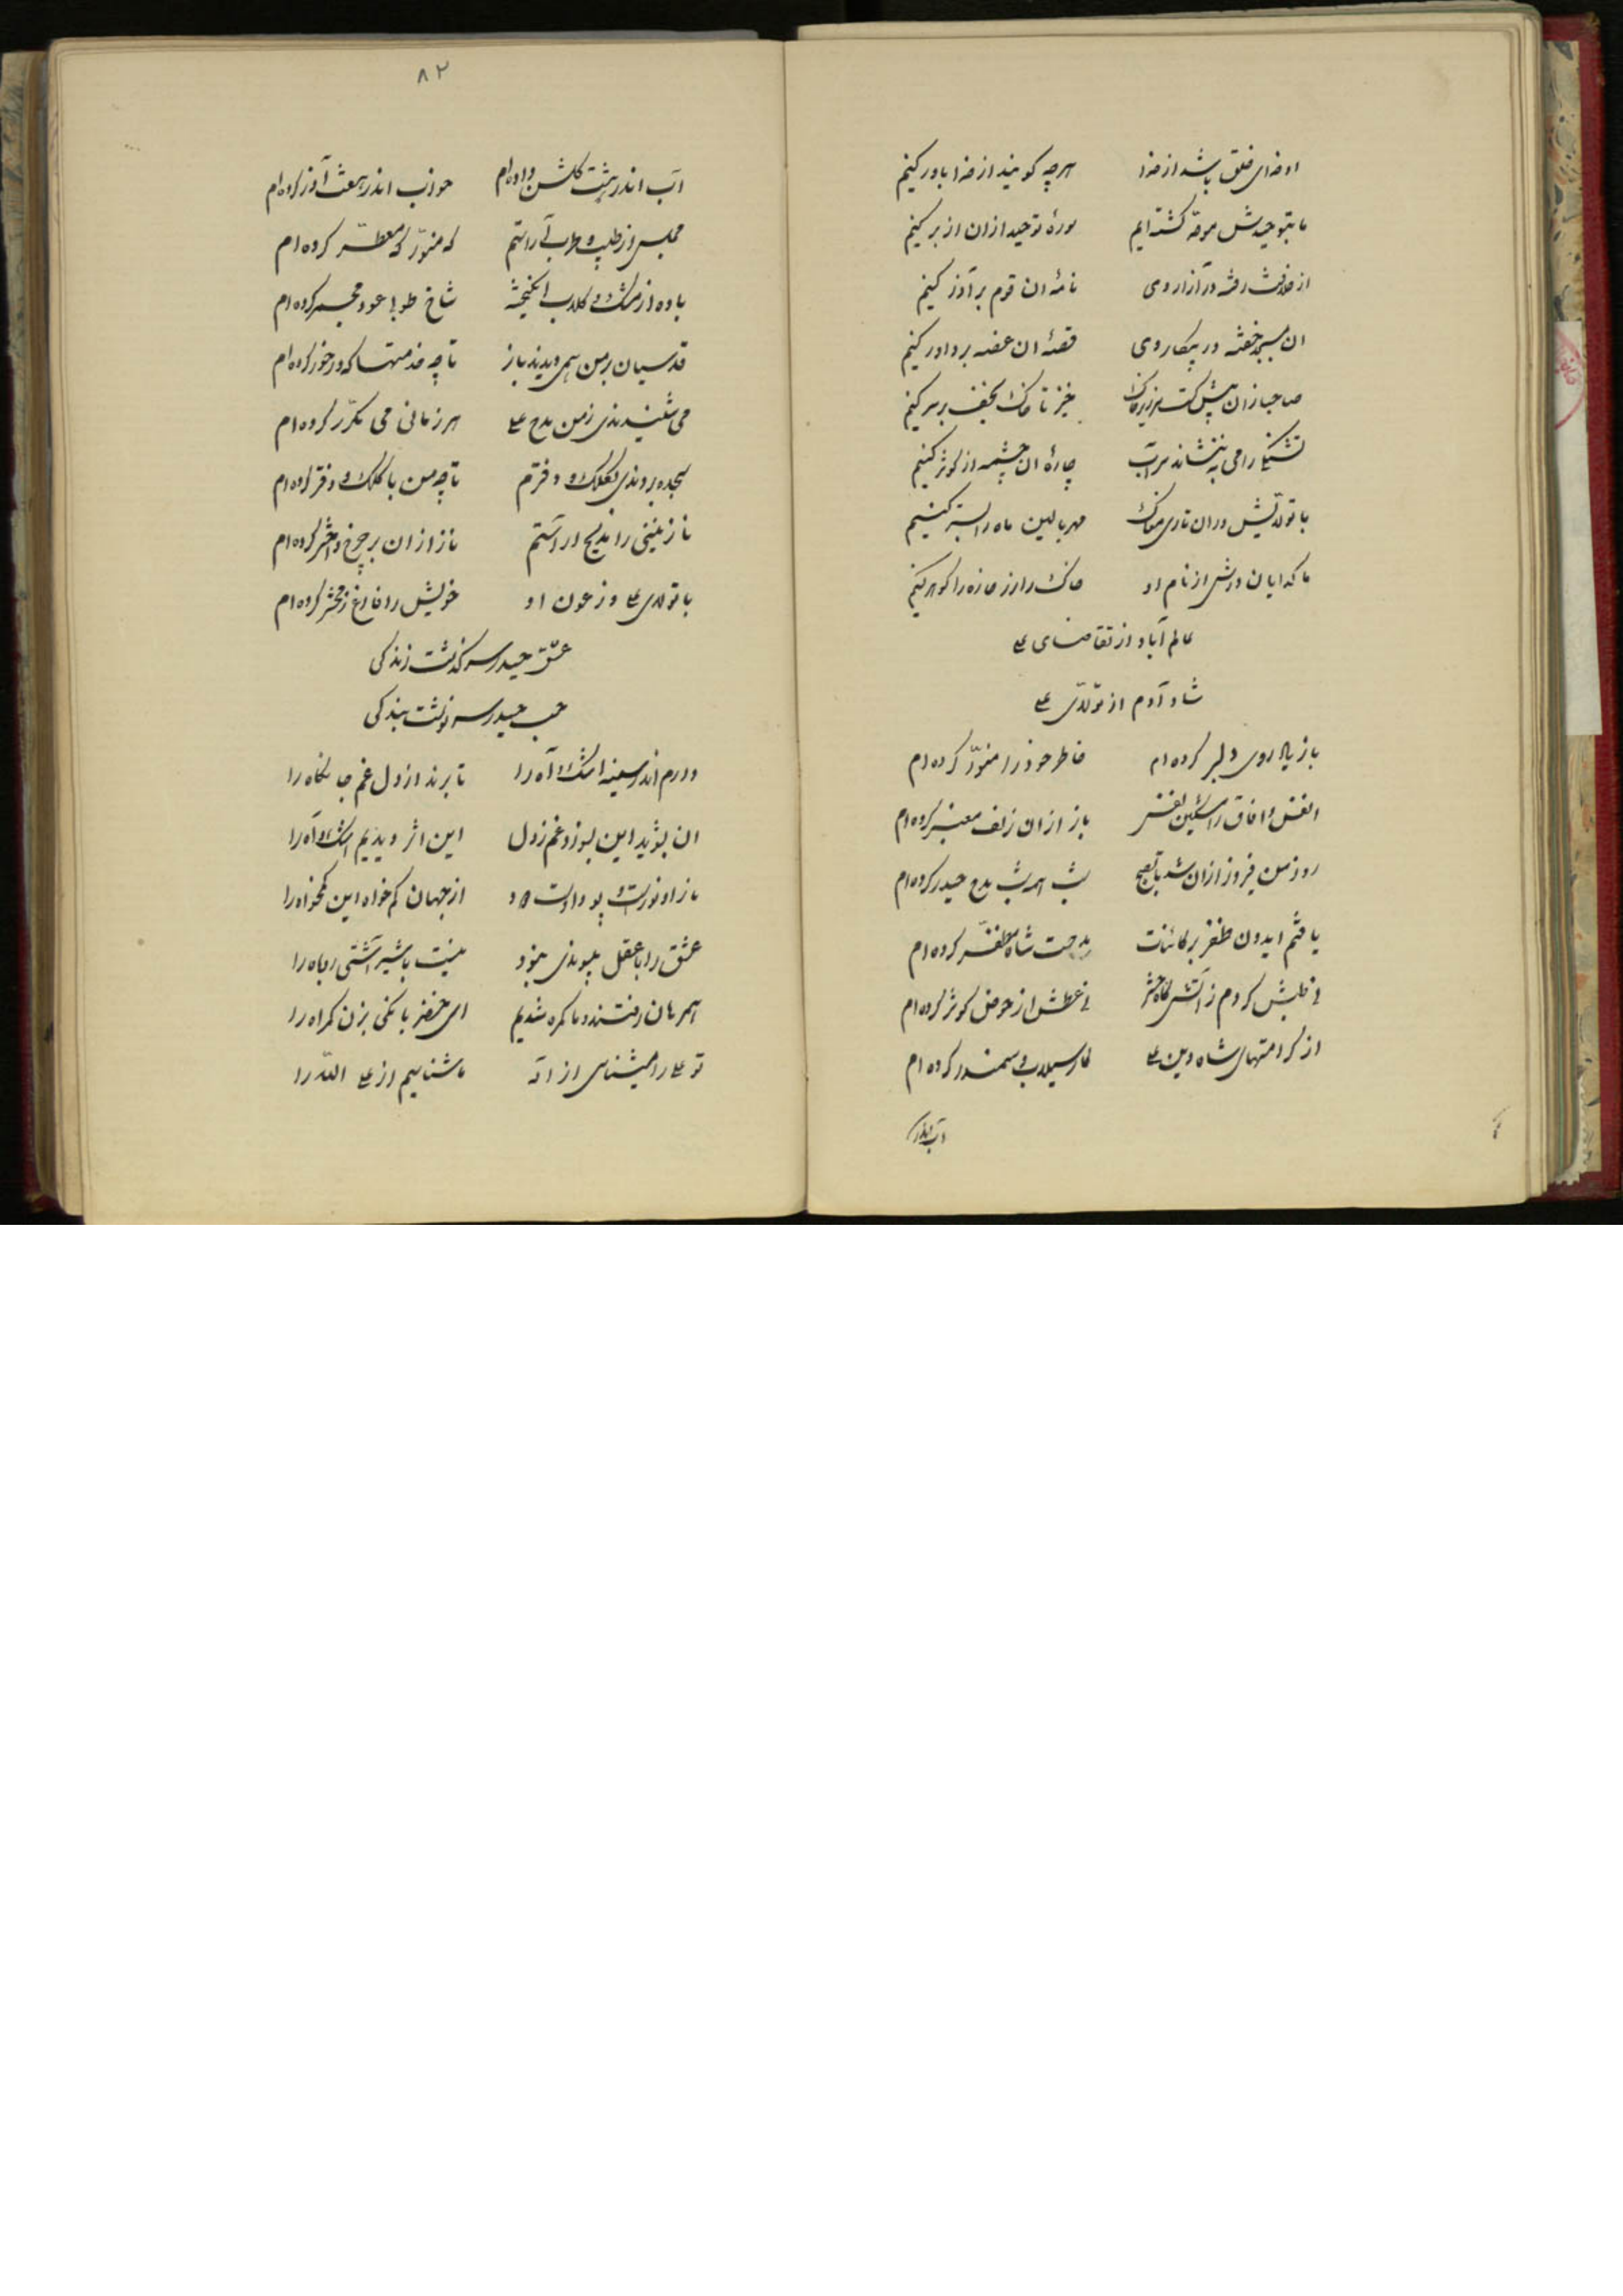 او خدای خلق باشد از خدا هرچه گویند از خدا باور کنیم
ما بتوحیدش موحد گشته ایم سورهٔ توحید ازان از بر کنیم
از خلافت رفته در آزار وی نامهٔ ان قوم بر آذر کنیم
ان بمسجد خفته در پیکار وی قصهٔ ان غصه بر داور کنیم
خیز تا خاک نجف بر سر کنیم
تشنگی را می به ننشاند سراب چارهٔ ان چشمه از کوثر کنیم
با تولایش دران تاری مغاک مهر بالین ماه را بستر کنیم
ما گدایان درش از نام او خاک را زر خاره را گوهر کنیم
عالم آباد از تقاضای علی
شاد آدم از تولای علی
باز یاد روی دلبر کرده ام خاطر خود را منور کرده ام
انفس و افاق را مشکین نفس باز ازان زلف معنبر کرده ام
روز من فیروز ازان شد تا بصبح شب همه شب مدح حیدر کرده ام
یافتم ایدون ظفر بر کائنات مدحت شاه مظفر کرده ام
نی طپش کردم ز آتش گاه حشر نی عطش از حوض کوثر کرده ام
از کرامتهای شاه دین علی کار سیلاب و سمندر کرده ام
آب اندر
۸۲
آب اندر پشت گلشن داده ام خواب اندر پشت آذر کرده ام
مجلس از طیب و طرب آراستم که منور که معطر کرده ام
باده از مشک و گلاب انگیخته شاخ طوبا عود مجمر کرده ام
قدسیان بر من همی دیدند باز تا چه خدمتها که در خور کرده ام
می شنیدندی ز من مدح علی هر زمانی می مکرر کرده ام
سجده بردندی بکلک و دفترم تا چه من با کلک و دفتر کرده ام
نازنینی را بمدیح آراستم ناز ازان بر چرخ و اختر کرده ام
با تولای علی وز عون او خویش را فارغ ز محشر کرده ام
عشق حیدر سرگذشت زندگی
حب حیدر سرنوشت بندگی
دارم اندر سینه اشک و آه را تا برند از دل غم جانکاه را
ان بشوید این بسوزد غم ز دل این اثر دیدیم اشک و آه را
از جهان کم خواه این کمخواه را
عشق را با عقل پیوندی نبود نیست با شیر آشتی روباه را
همرهان رفتند و ما گمره شدیم ای خضر بانگی بزن گمراه را
تو علی را میشناسی از اله ما شناسیم از علی الله را